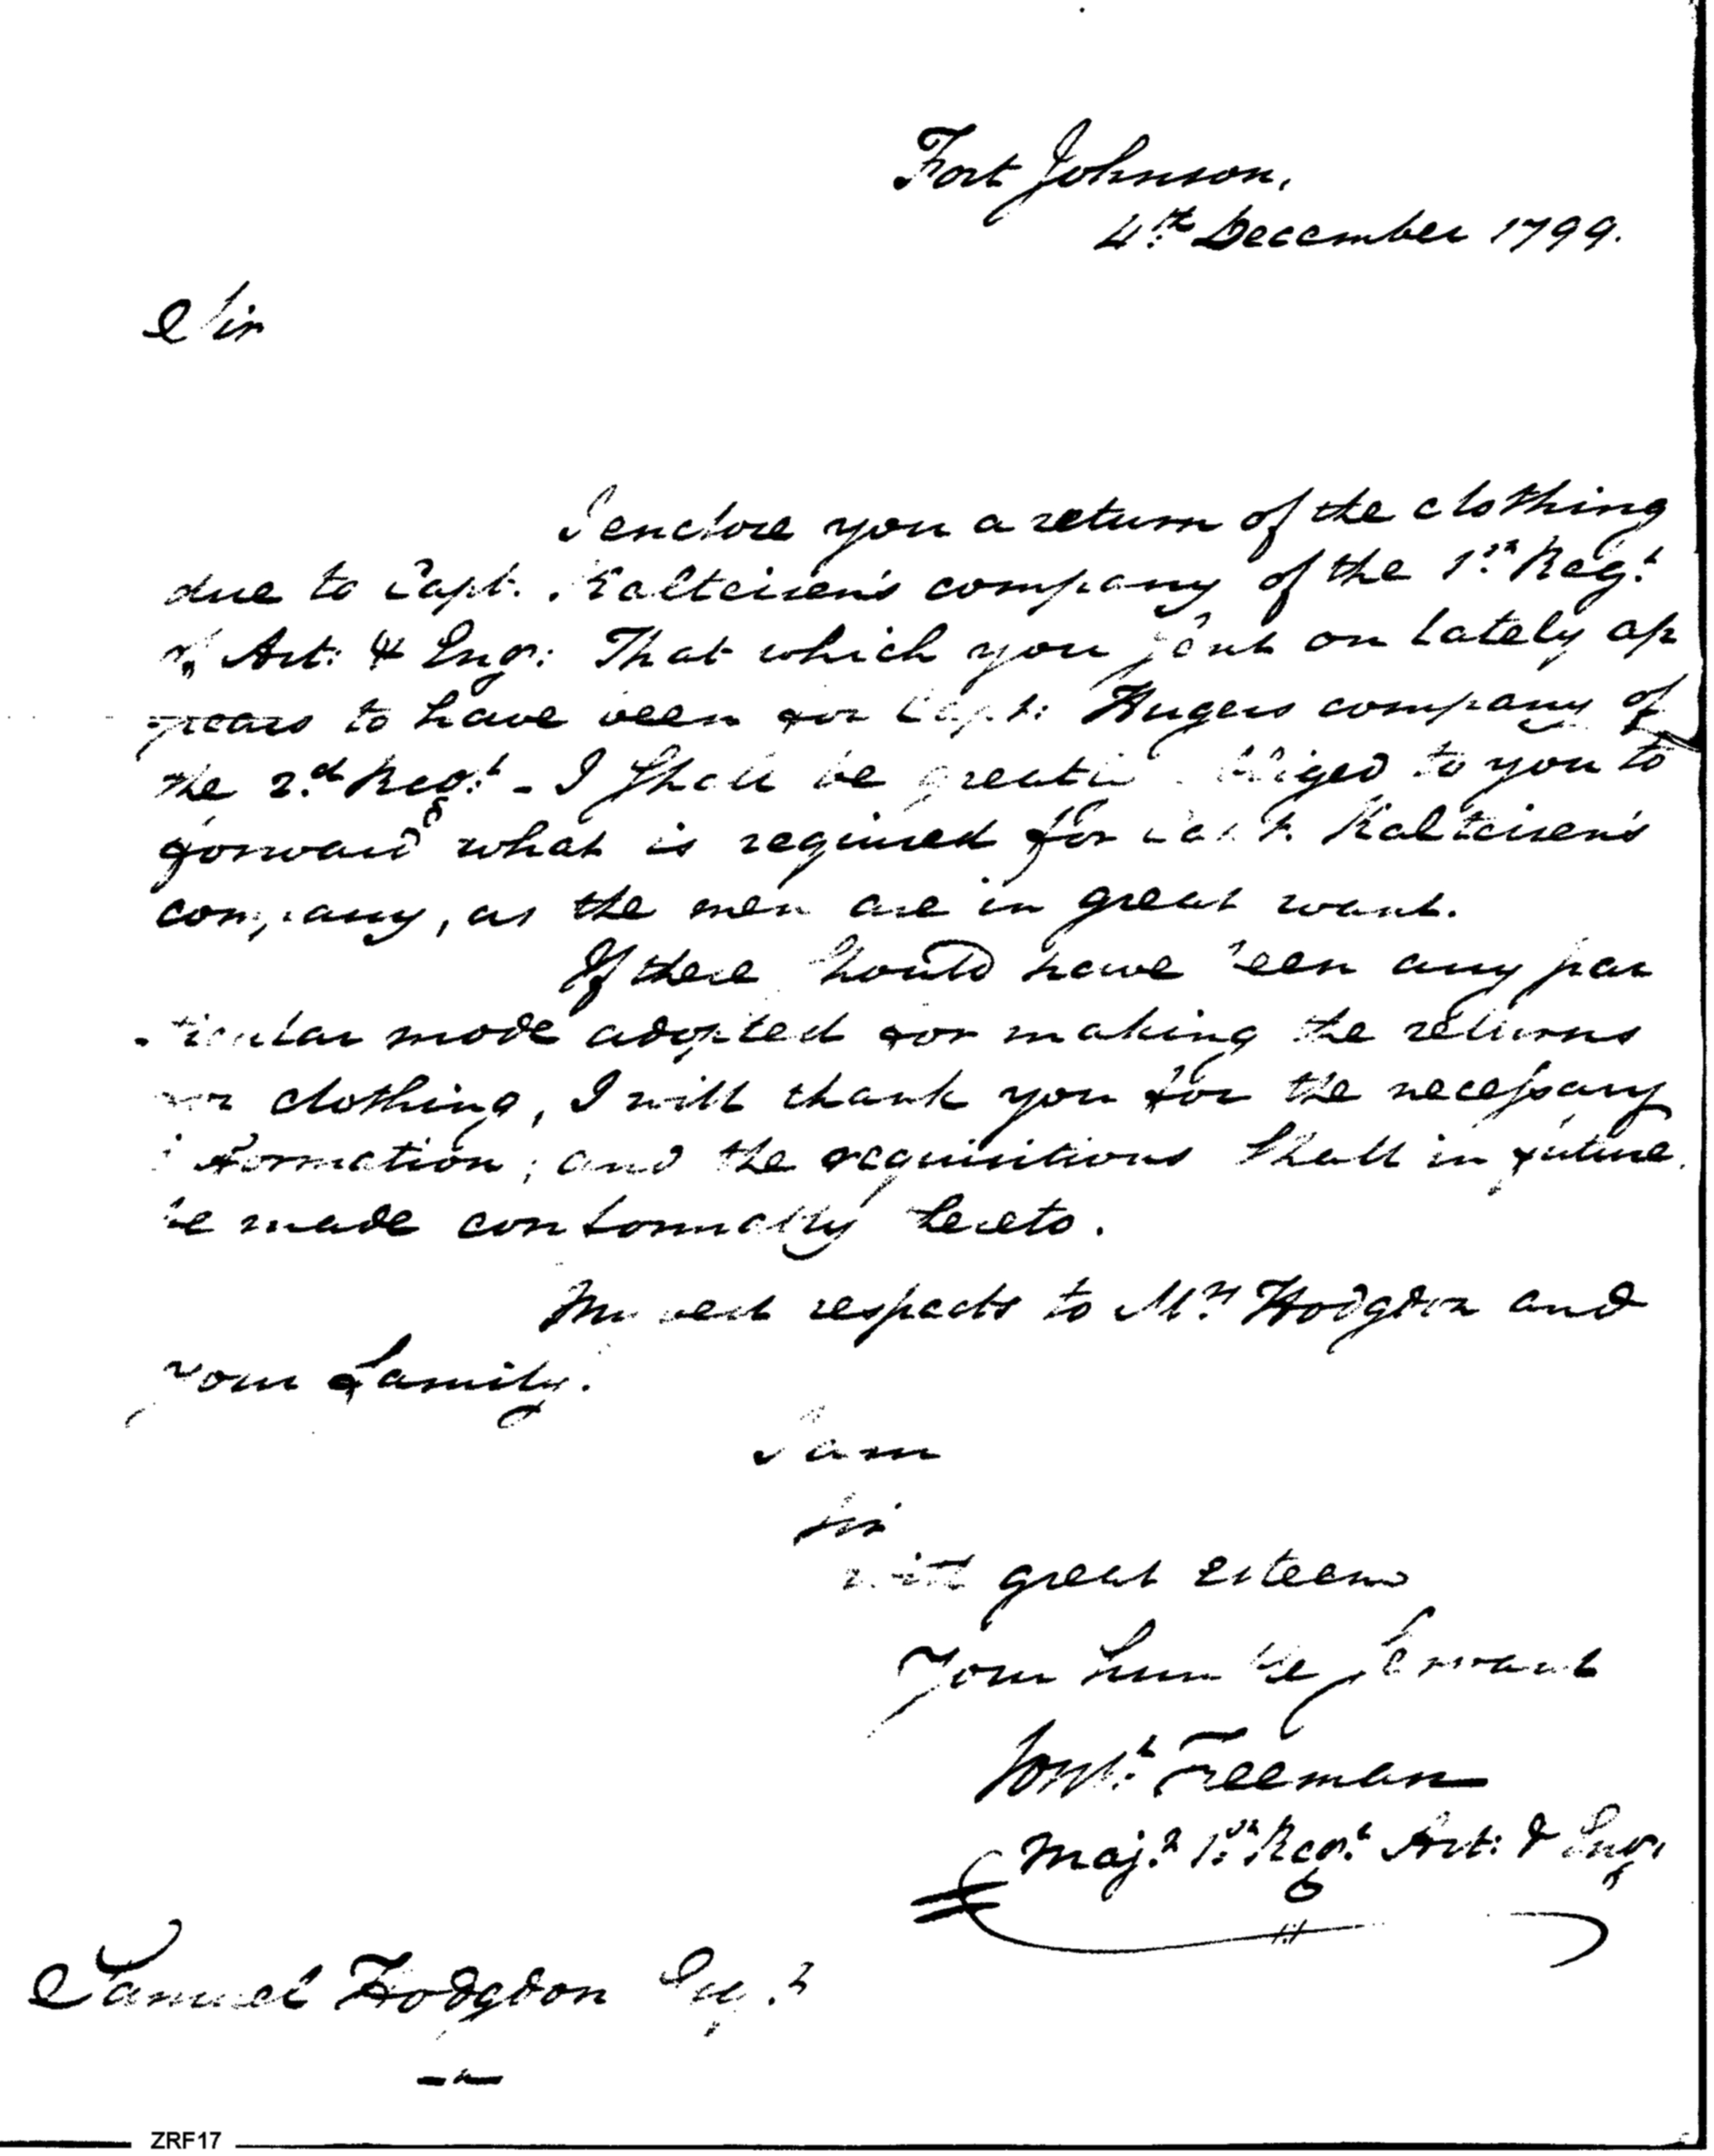 Fort Johnson,
4th December 1799.
Sir
I enclose you a return of the clothing
due to Capt. Kalteisen's company of the 1st Regt
of Art: & Engr: That which you sent on lately ap
pears to have been for Capt: Hugers company of
the 2d Regt - I shall be greatly obliged to you to
forward what is required for Capt. Kalteisen's
company, as the men are in great want.
If there should have been any par
-ticular mode adopted for making the returns
for clothing, I will thank you for the necessary
information; and the requisitions shall in future
be made conformably hereto.
My best respects to Mrs Hodgdon and
your family.
I am
Sir
with great esteem
Your humble servant
Freeman
Majr 1st Regt Art: & Engr
Samuel Hodgdon Esqr
ZRF17